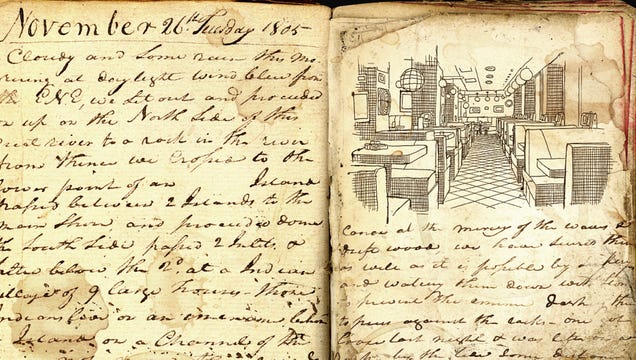 November 26th Tuesday 1805
Cloudy and Some rain this mo
rning at daylight wind blew from
the ENE, we Set out and proceeded
on up on the North Side of this
river to a rock in the river
from thence we Crossed to the
lower point of an Island
passed between 2 Islands to the
main Shore, and proceeded down
the South Side, passed 2 Inlets &
below the 2d. at a Indian
village of 9 large houses - those
Indians live on an emenence behind
Island, on a Channel of the
Canoe at the mercy of the waves &
drift wood, we have Scured them
as well as it is possible by
and them down with
to prevent the emence
to pices against the rocks - one
loose last night & was left on a
by the tide Some distance